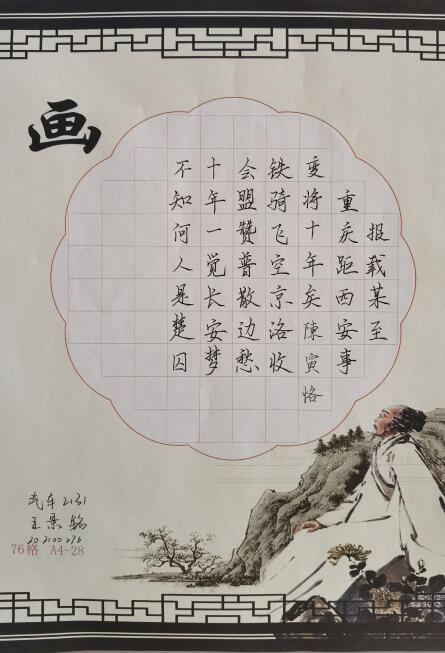 画
报载某至
重庆距西安事
变将十年矣陳寅恪
铁骑飞空京洛收
会盟赞普散边愁
十年一觉长安梦
不知何人是楚囚
汽车2131
王景铭
202100276
76格 A4-28